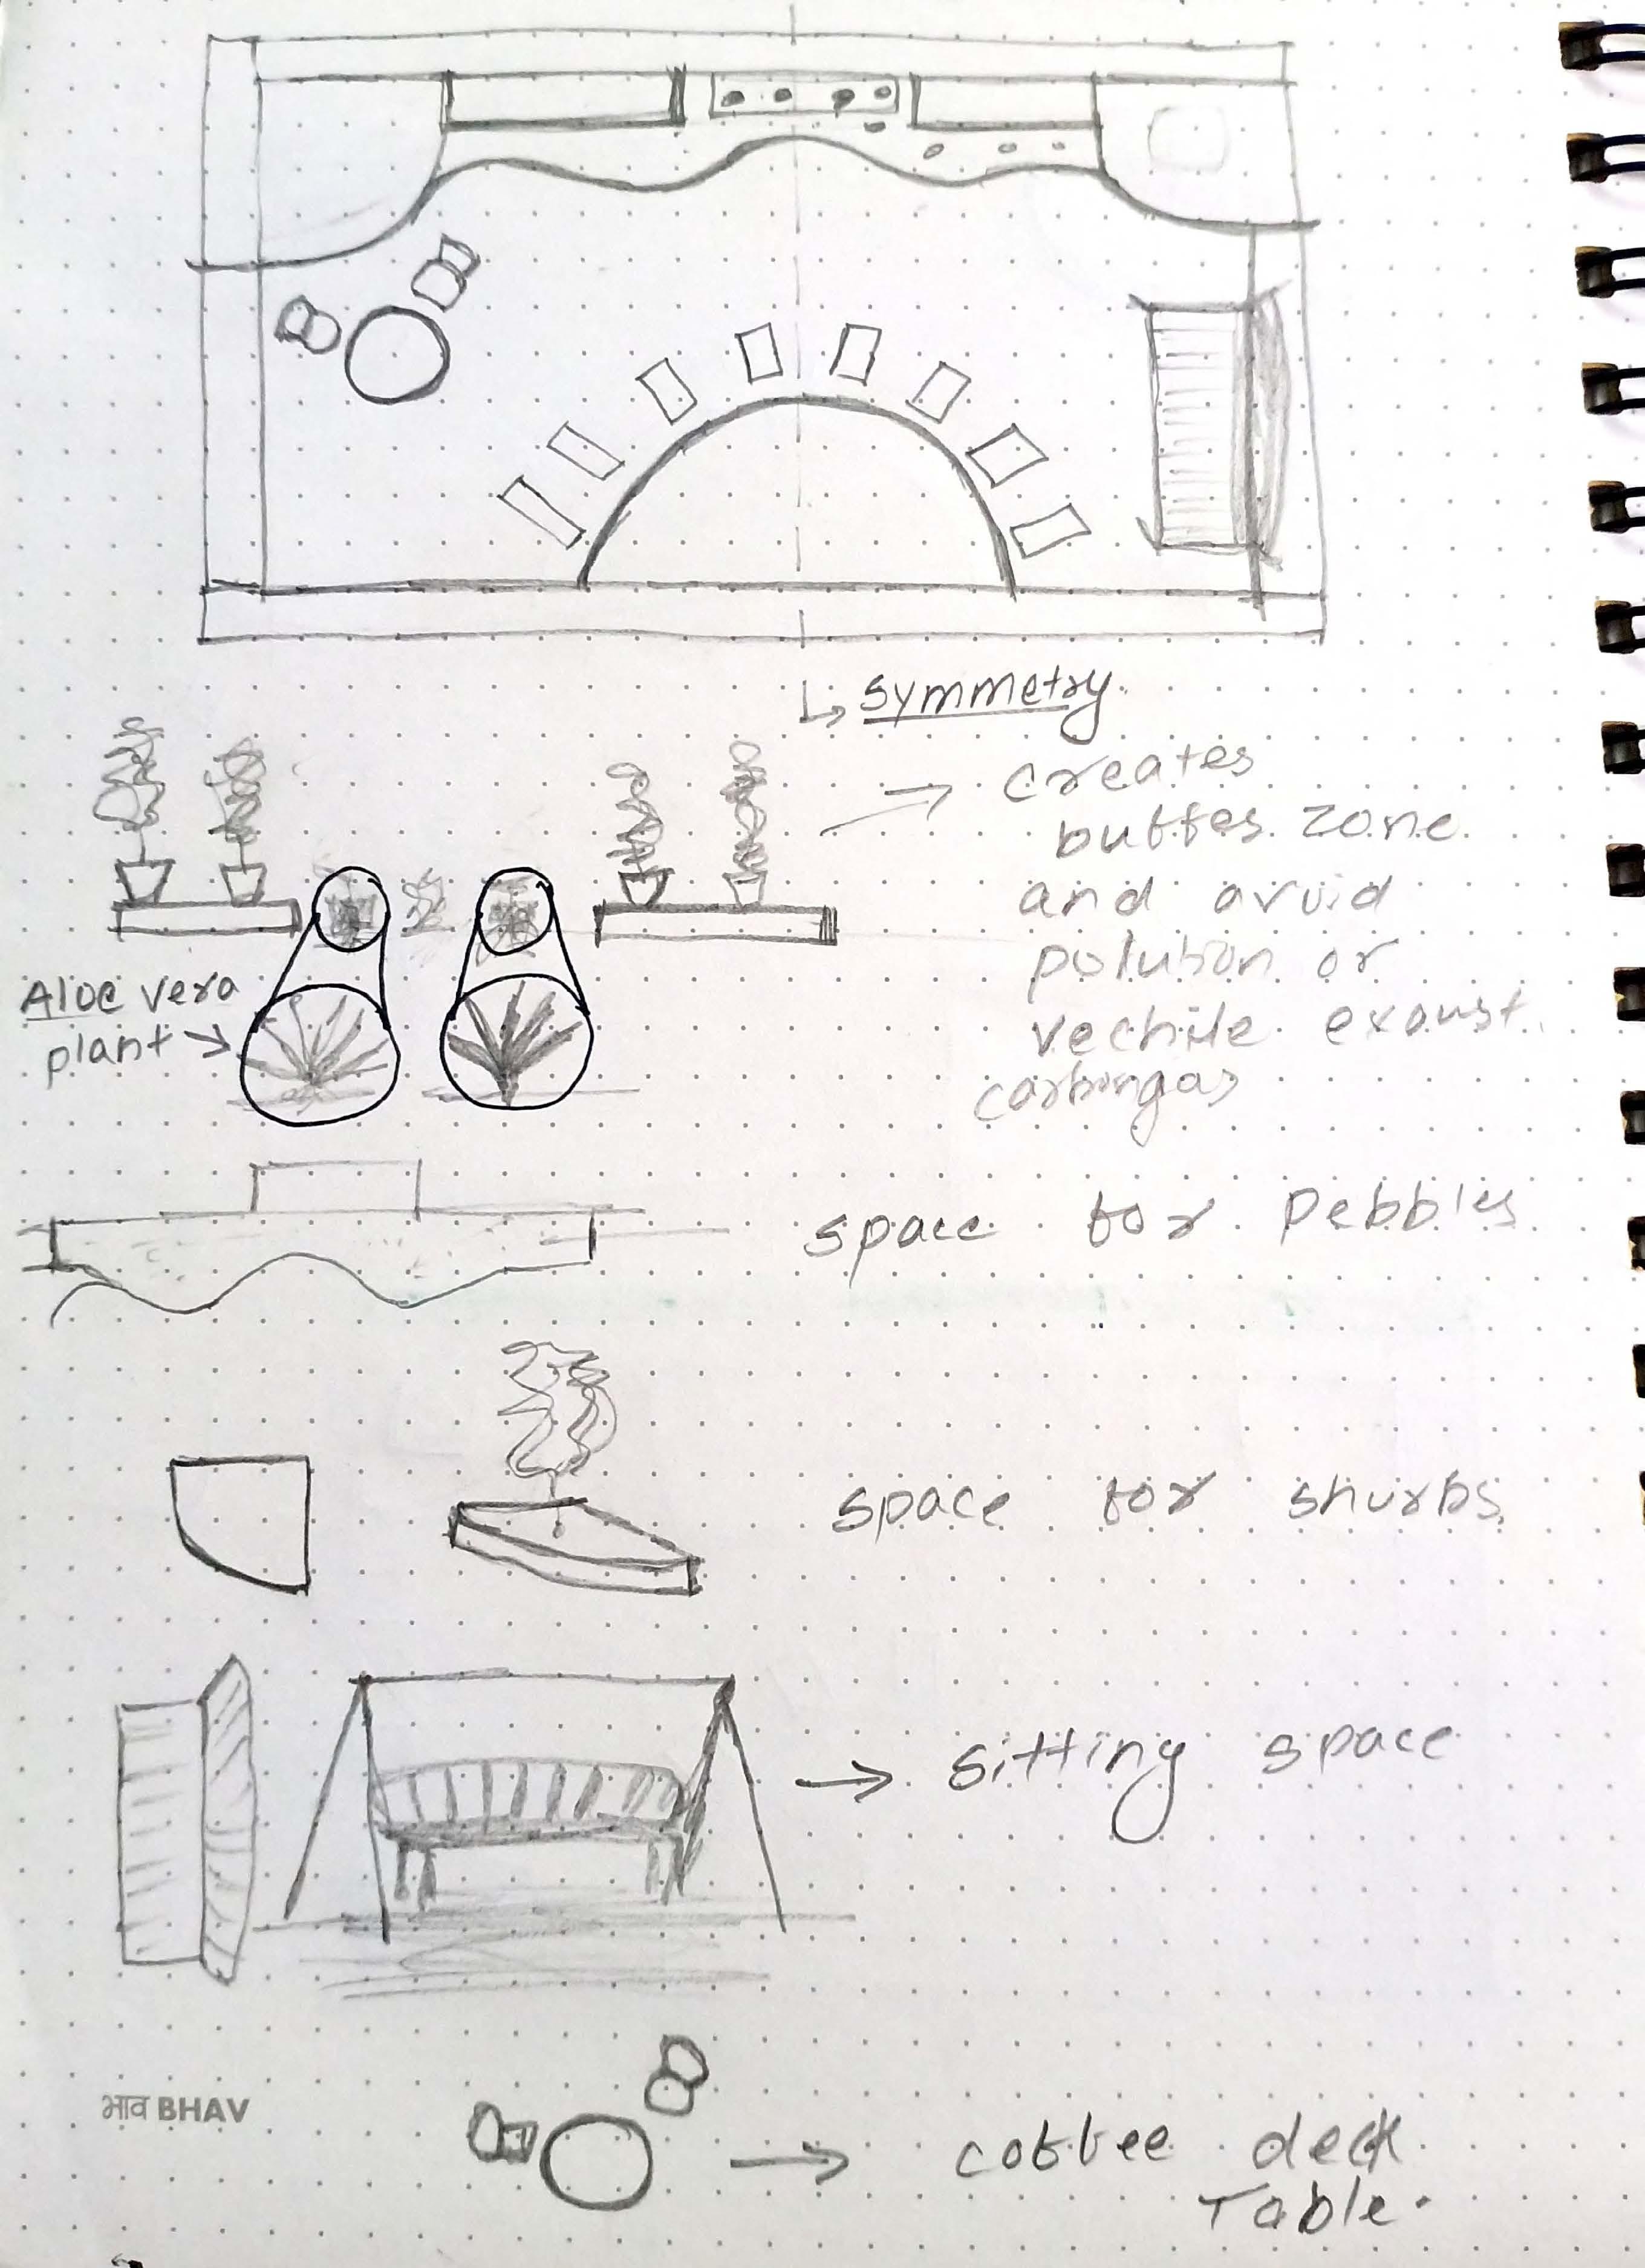 symmetry.
creates
buffes zone
and avuid
polution or
vechile exoust
carbongas
Aloe vera
plant
space for Pebbles
space for shurbs
sitting space
भाव BHAV
coffee deck
Table.